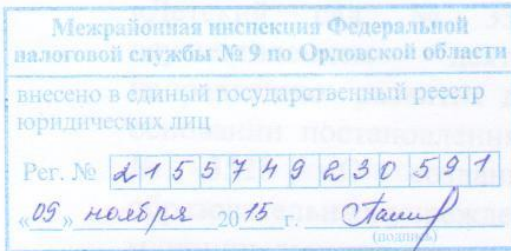 Межрайонная инспекция Федеральной
налоговой службы № 9 по Орловской области
внесено в единый государственный реестр
юридических лиц
Рег. № 2155749230591
«09» ноября 2015 г.
(подпись)